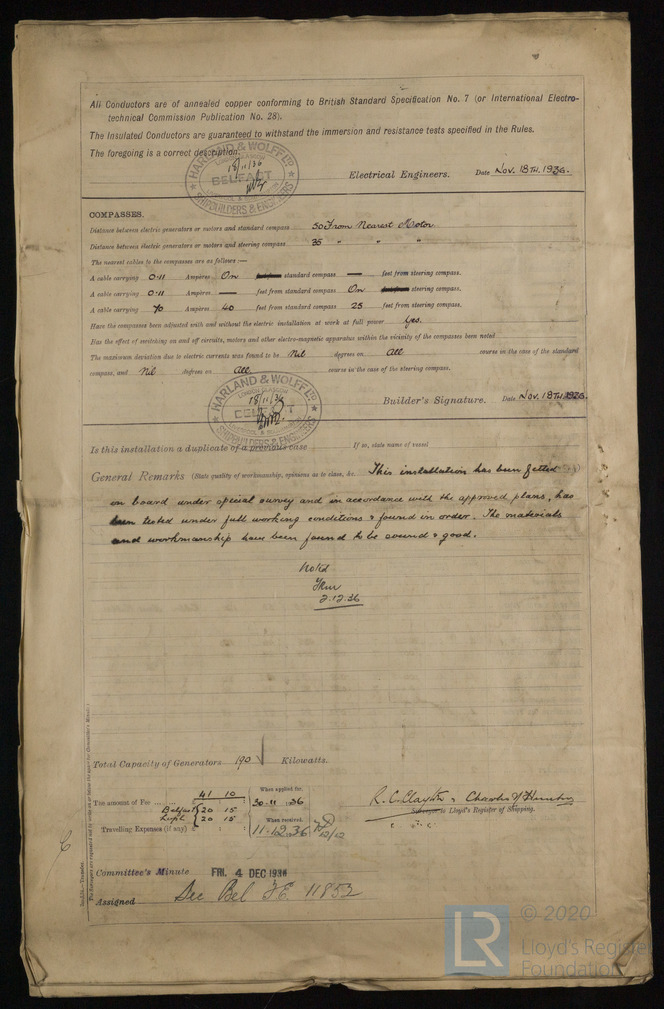 All Conductors are of annealed copper conforming to British Standard Specification No. 7 (or International Electro-
technical Commission Publication No. 28).
The Insulated Conductors are guaranteed to withstand the immersion and resistance tests specified in the Rules.
The foregoing is a correct description.
HARLAND & WOLFF LTD
18/11/36
BELFAST
SHIPBUILDERS & ENGINEERS
Electrical Engineers. Date Nov. 18TH. 1936.
COMPASSES.
Distance between electric generators or motors and standard compass 50 From Nearest Motor
Distance between electric generators or motors and steering compass 35 " " "
The nearest cables to the compasses are as follows:—
A cable carrying 0.11 Ampères On standard compass — feet from steering compass.
A cable carrying 0.11 Ampères — feet from standard compass On steering compass.
A cable carrying 70 Ampères 40 feet from standard compass 25 feet from steering compass.
Have the compasses been adjusted with and without the electric installation at work at full power Yes.
Has the effect of switching on and off circuits, motors and other electro-magnetic apparatus within the vicinity of the compasses been noted
The maximum deviation due to electric currents was found to be Nil degrees on All course in the case of the standard
compass, and Nil degrees on All course in the case of the steering compass.
HARLAND & WOLFF LTD
18/11/36
SHIPBUILDERS & ENGINEERS
Builder's Signature. Date Nov. 18TH. 1936.
Is this installation a duplicate of a previous case If so, state name of vessel
General Remarks (State quality of workmanship, opinions as to class, &c. This installation has been fitted
on board under special survey and in accordance with the approved plans, has
been tested under full working conditions & found in order. The materials
and workmanship have been found to be sound & good.
Noted
2.12.36
Total Capacity of Generators 190 Kilowatts.
41 10
The amount of Fee ...
Belfast 20 15
20 15
Travelling Expenses (if any) £ : :
When applied for,
30.11.36
When received,
11.12.36
12/12
R. C. Clayton &
Surveyor to Lloyd's Register of Shipping.
Committee's Minute FRI. 4 DEC 1936
Assigned See Bel F.E. 11852
LR
© 2020
Lloyd's Register
Foundation